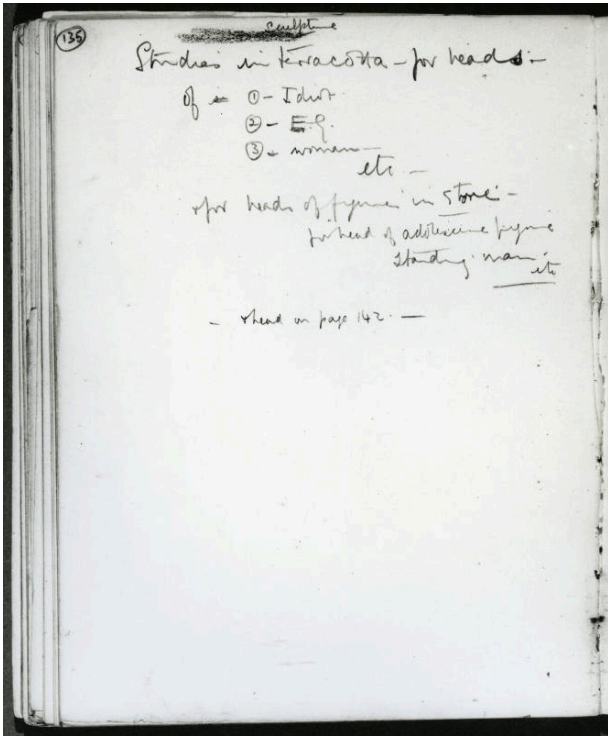 135
sculpture
Studies in terracotta – for heads –
of – ① – Idiot
② – E.G.
③ – women –
etc –
+ for heads of figures in stone –
for head of adolescine figure
standing man –
etc
– + head on page 142 –